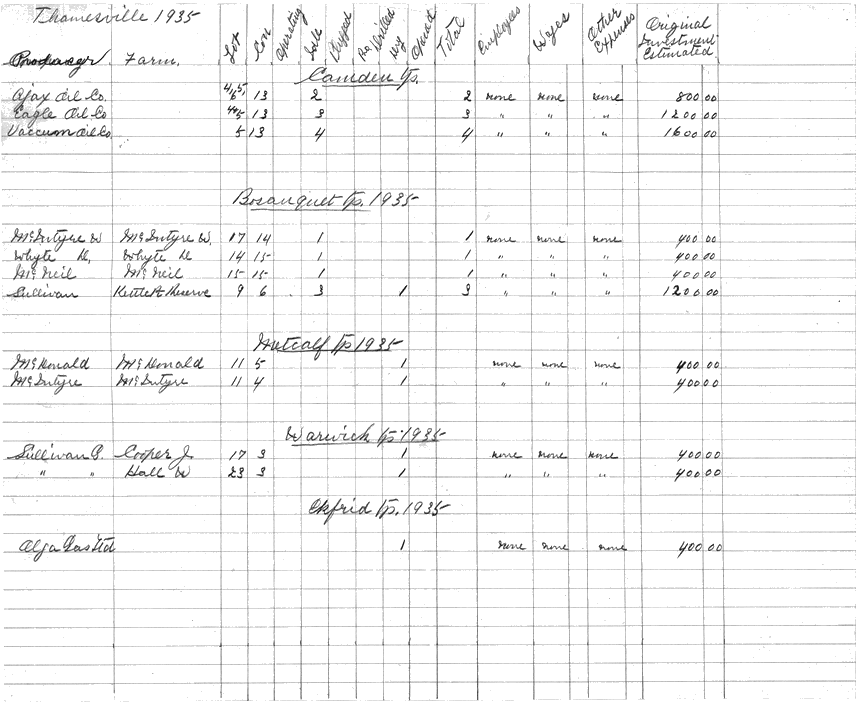 Thamesville 1935
Producer Farm. Lot Con Operating Idle Dry Total Employees Wages Other Expenses Original Investment Estimated
Camden Tp.
Ajax Oil Co. 13 2 2 none none none 800 00
Eagle Oil Co 4&5 13 3 3 " " " 1200 00
Vaccum Oil Co 5 13 4 4 " " " 1600.00
Bosanquet Tp. 1935
McIntyre W McIntyre W. 17 14 1 1 none none none 400 00
Whyte D. Whyte D 14 15 1 1 " " " 400.00
McNeil McNeil 15 15 1 1 " " " 400 00
Sullivan Kettle Pt Reserve 9 6 3 1 3 " " " 1200.00
Metcalf Tp 1935
McDonald McDonald 11 5 1 none none none 400 00
McIntyre McIntyre 11 4 1 " " " 400 00
Warwick Tp. 1935
Sullivan P. Cooper J. 17 3 1 none none none 400 00
" " Hall W 23 3 1 " " " 400 00
Ekfrid Tp. 1935
Gas Ltd 1 none none none 400 00